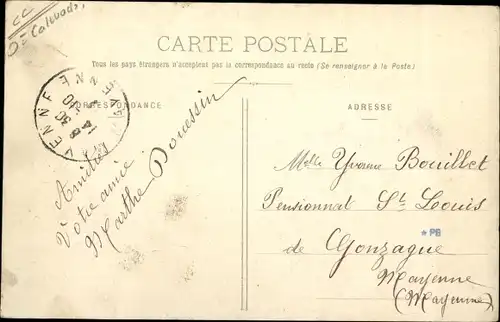 CC
Dt Calvados
CARTE POSTALE
Tous les pays étrangers n'acceptent pas la correspondance au recto (Se renseigner à la Poste)
CORRESPONDANCE
ADRESSE
Amitiés
Votre amie
Marthe Pouessin
Melle Yvonne Bouillet
Pensionnat St Louis
de Gonzague
*PB
Mayenne
(Mayenne)